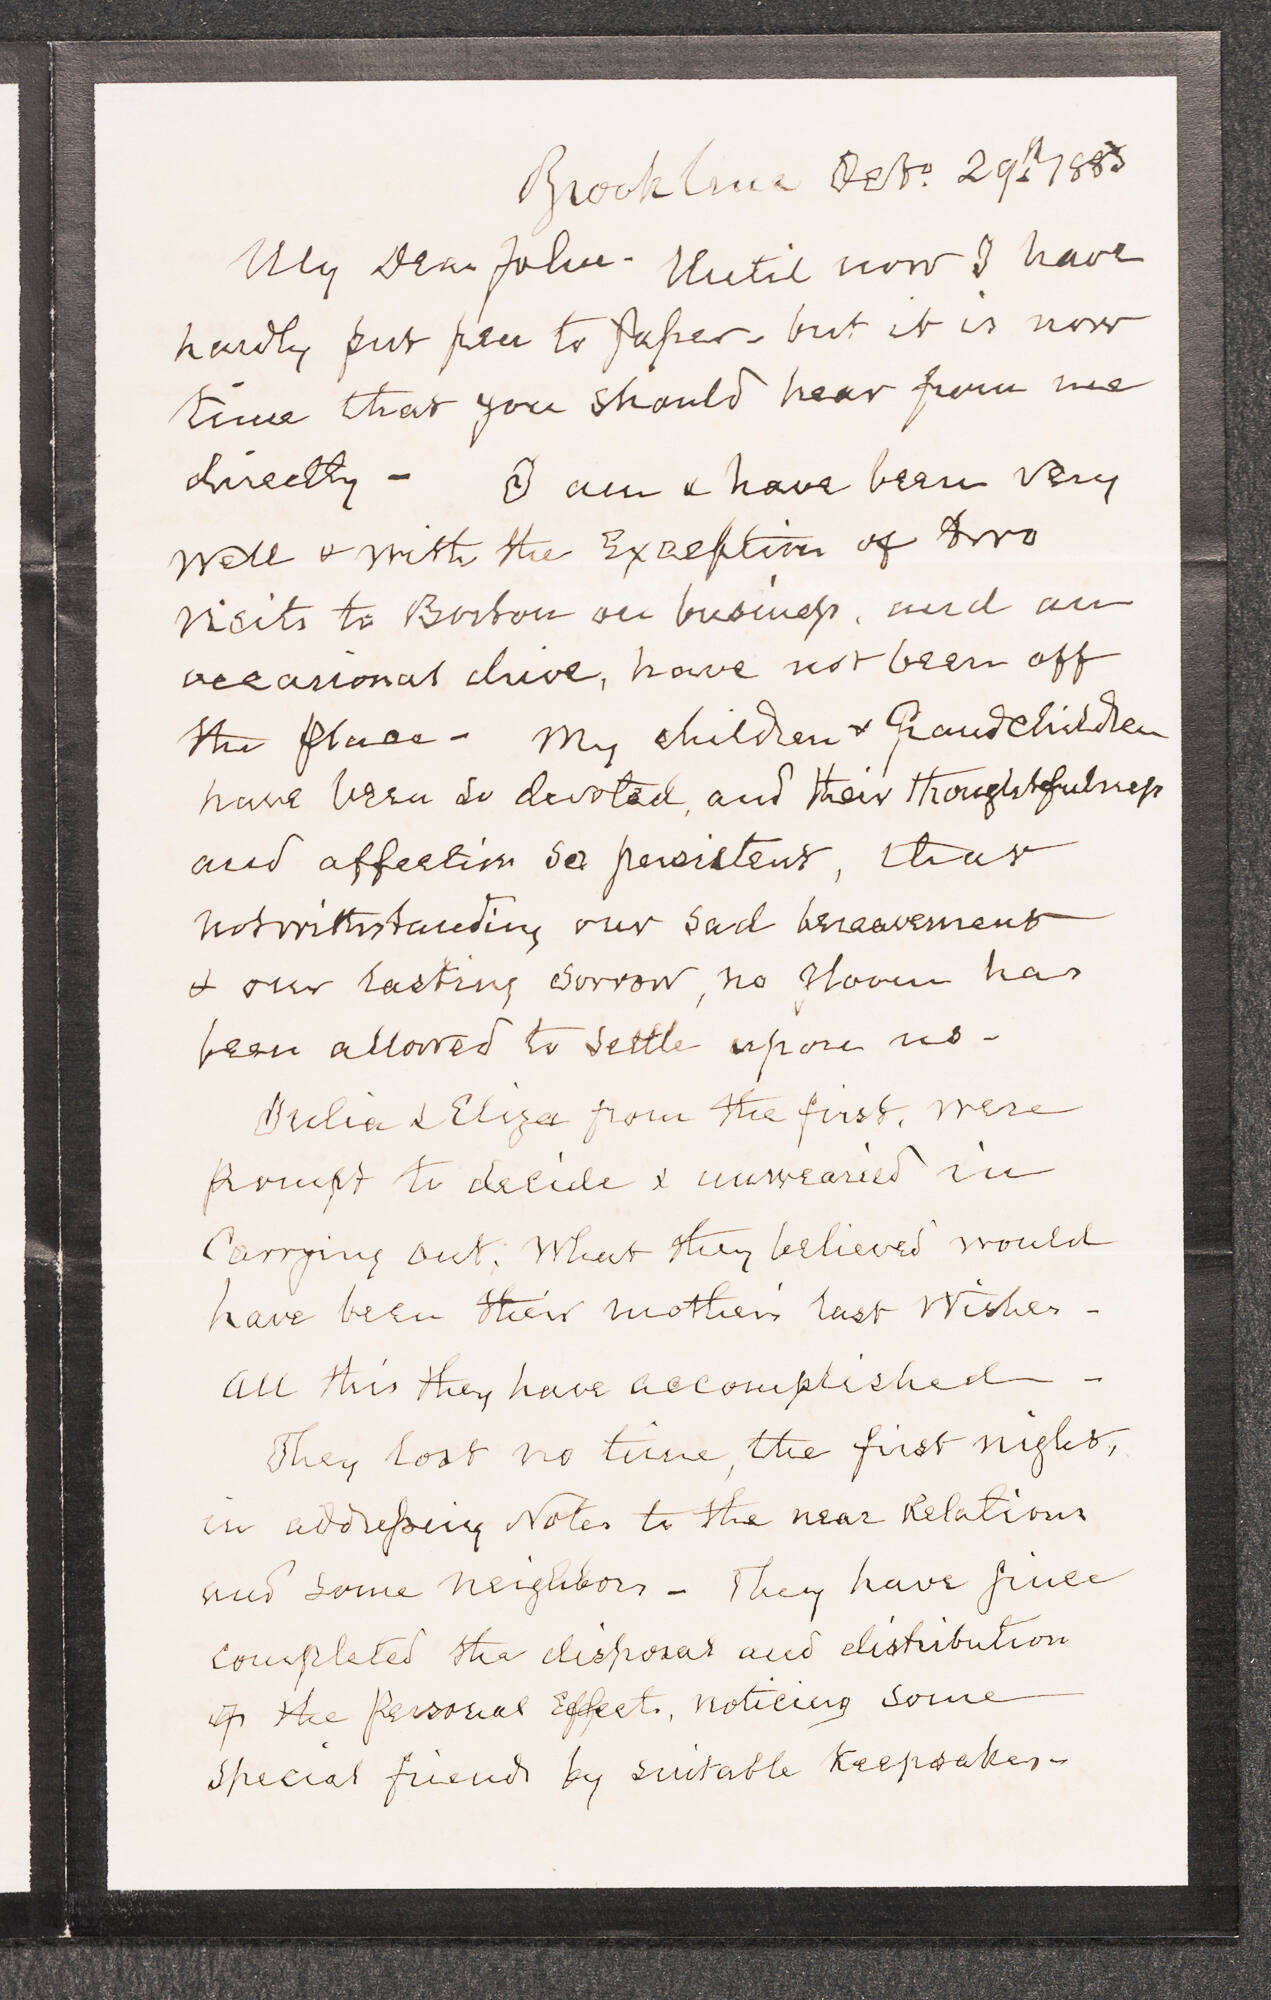 Brookline Octo. 29th 1883
My Dear John - Until now I have
hardly put pen to paper - but it is now
time that you should hear from me
directly - I am & have been very
well & with the Exception of two
visits to Boston on business, and an
occasional drive, have not been off
the place - My children & Grandchildren
have been so devoted, and their thoughtfulness
and affection so persistent, that
notwithstanding our sad bereavement
& our lasting sorrow, no gloom has
been allowed to settle upon us -
Julia & Eliza from the first, were
prompt to decide & unwearied in
Carrying out, what they believed would
have been their mother's last Wishes -
All this they have accomplished -
They lost no time, the first night,
in addressing Notes to the near Relations
and some neighbors - They have since
completed the disposal and distribution
of the Personal Effects, noticing some
special friends by suitable Keepsakes -